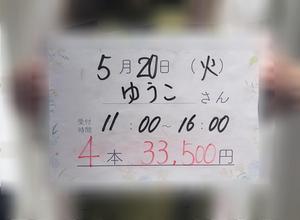 5月20日(火)
ゆうこさん
受付時間 11:00~16:00
4本 33,500円